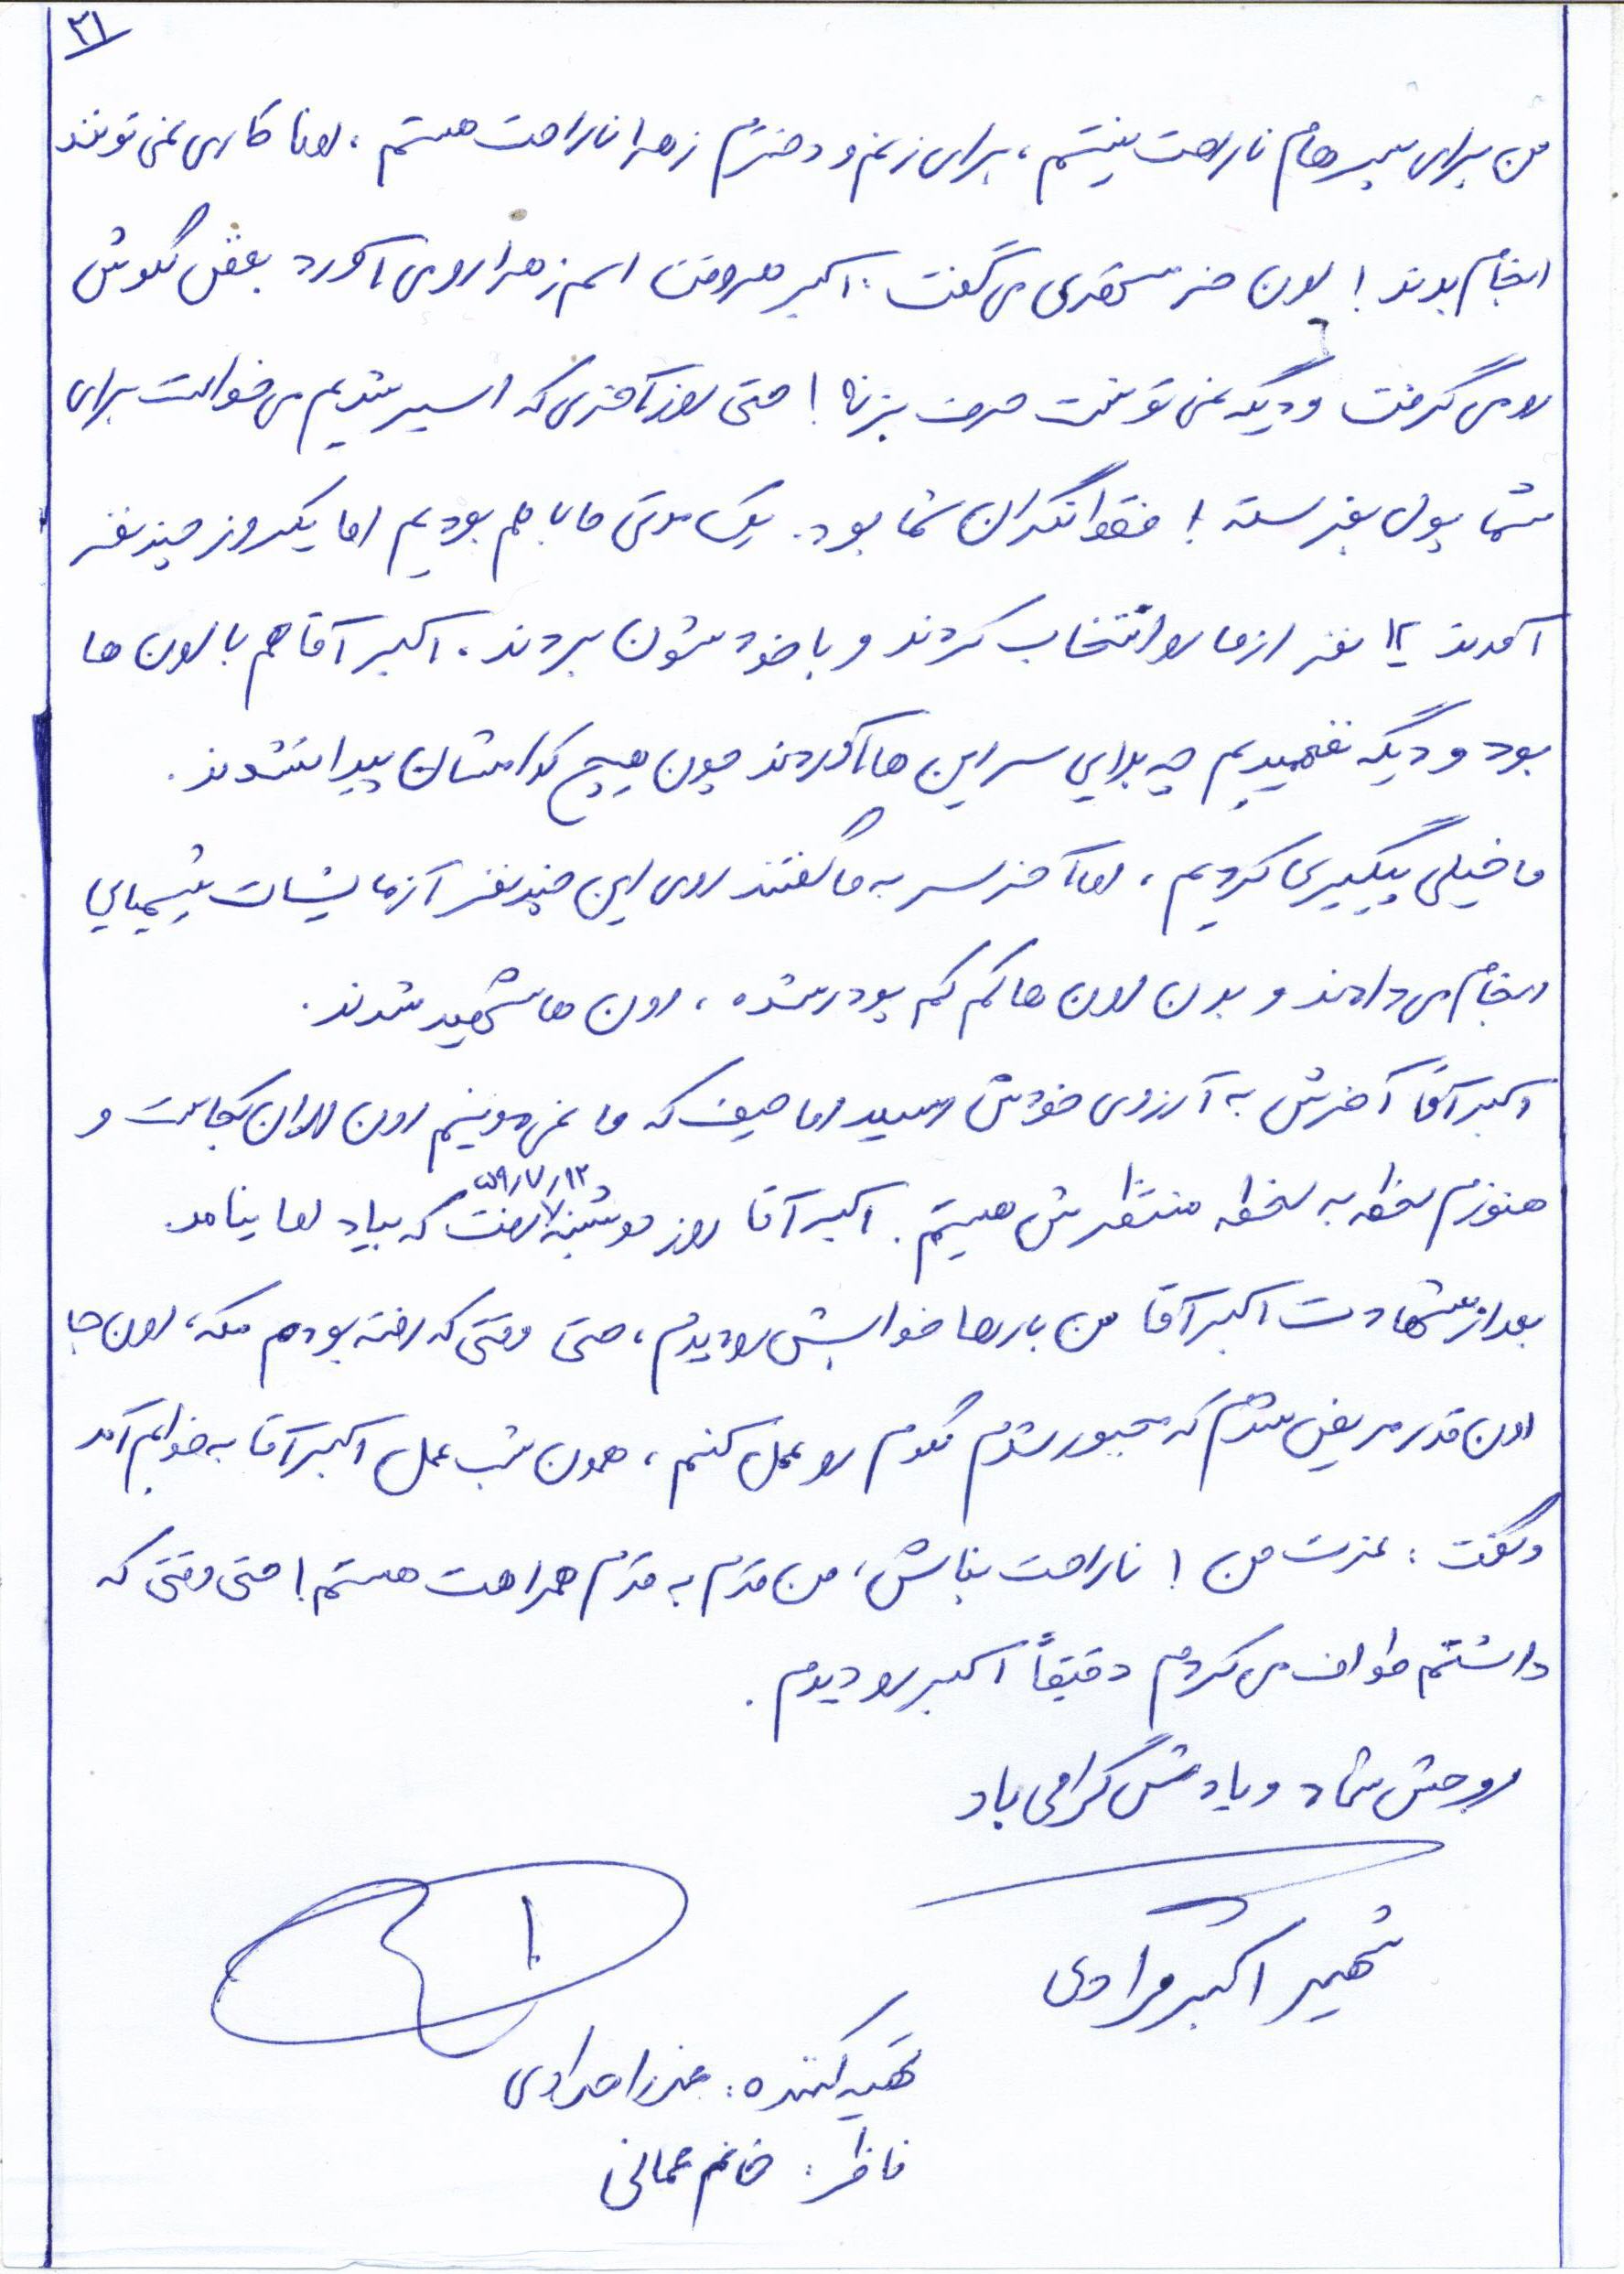 ۳۱
من برای پسرهام ناراحت نیستم، برای زنم و دخترم زهرا ناراحت هستم، اونا کاری نمی تونند
انجام بدند! اون می گفت: اکبر هروقت اسم زهرا روی آورد بغض گلوش
رومی گرفت ودیگه نمی تونست حرف بزنه! حتی روز آخری که اسیر شدیم می خواست برای
شما پول بفرسته! فقط نگران شما بود. یک مدتی ما با هم بودیم اما یکروز چند نفر
آمدند ۱۲ نفر از ما رو انتخاب کردند و با خودشون بردند. اکبر آقا هم با اون ها
بود و دیگه نفهمیدیم چه بلایی سر این ها آوردند چون هیچ کدامشان پیدا نشدند.
ما خیلی پیگیری کردیم، اما آخر سر به ما گفتند روی این چند نفر آزمایشات شیمیایی
انجام می دادند و بدن اون ها کم کم پودر شده، اون ها شهید شدند.
اکبر آقا آخرش به آرزوی خودش رسید اما حیف که ما نمی دونیم اون الان کجاست و
هنوزم لحظه به لحظه منتظرش هستیم. اکبر آقا روز دوشنبه ۵۹/۷/۱۲ رفت که بیاد اما نیامد.
بعد از شهادت اکبر آقا من بارها خوابش رو دیدم، حتی وقتی که رفته بودم مکه، اون جا
اون قدر مریض شدم که مجبور شدم گلوم رو عمل کنم، همون شب عمل اکبر آقا به خوابم آمد
وگفت: عزت من! ناراحت نباش، من قدم به قدم همراهت هستم! حتی وقتی که
داشتم طواف می کردم دقیقاً اکبر رو دیدم.
روحش شاد و یادش گرامی باد
شهید اکبر مرادی
تهیه کننده: عذرا مرادی
ناظر: خانم عمانی